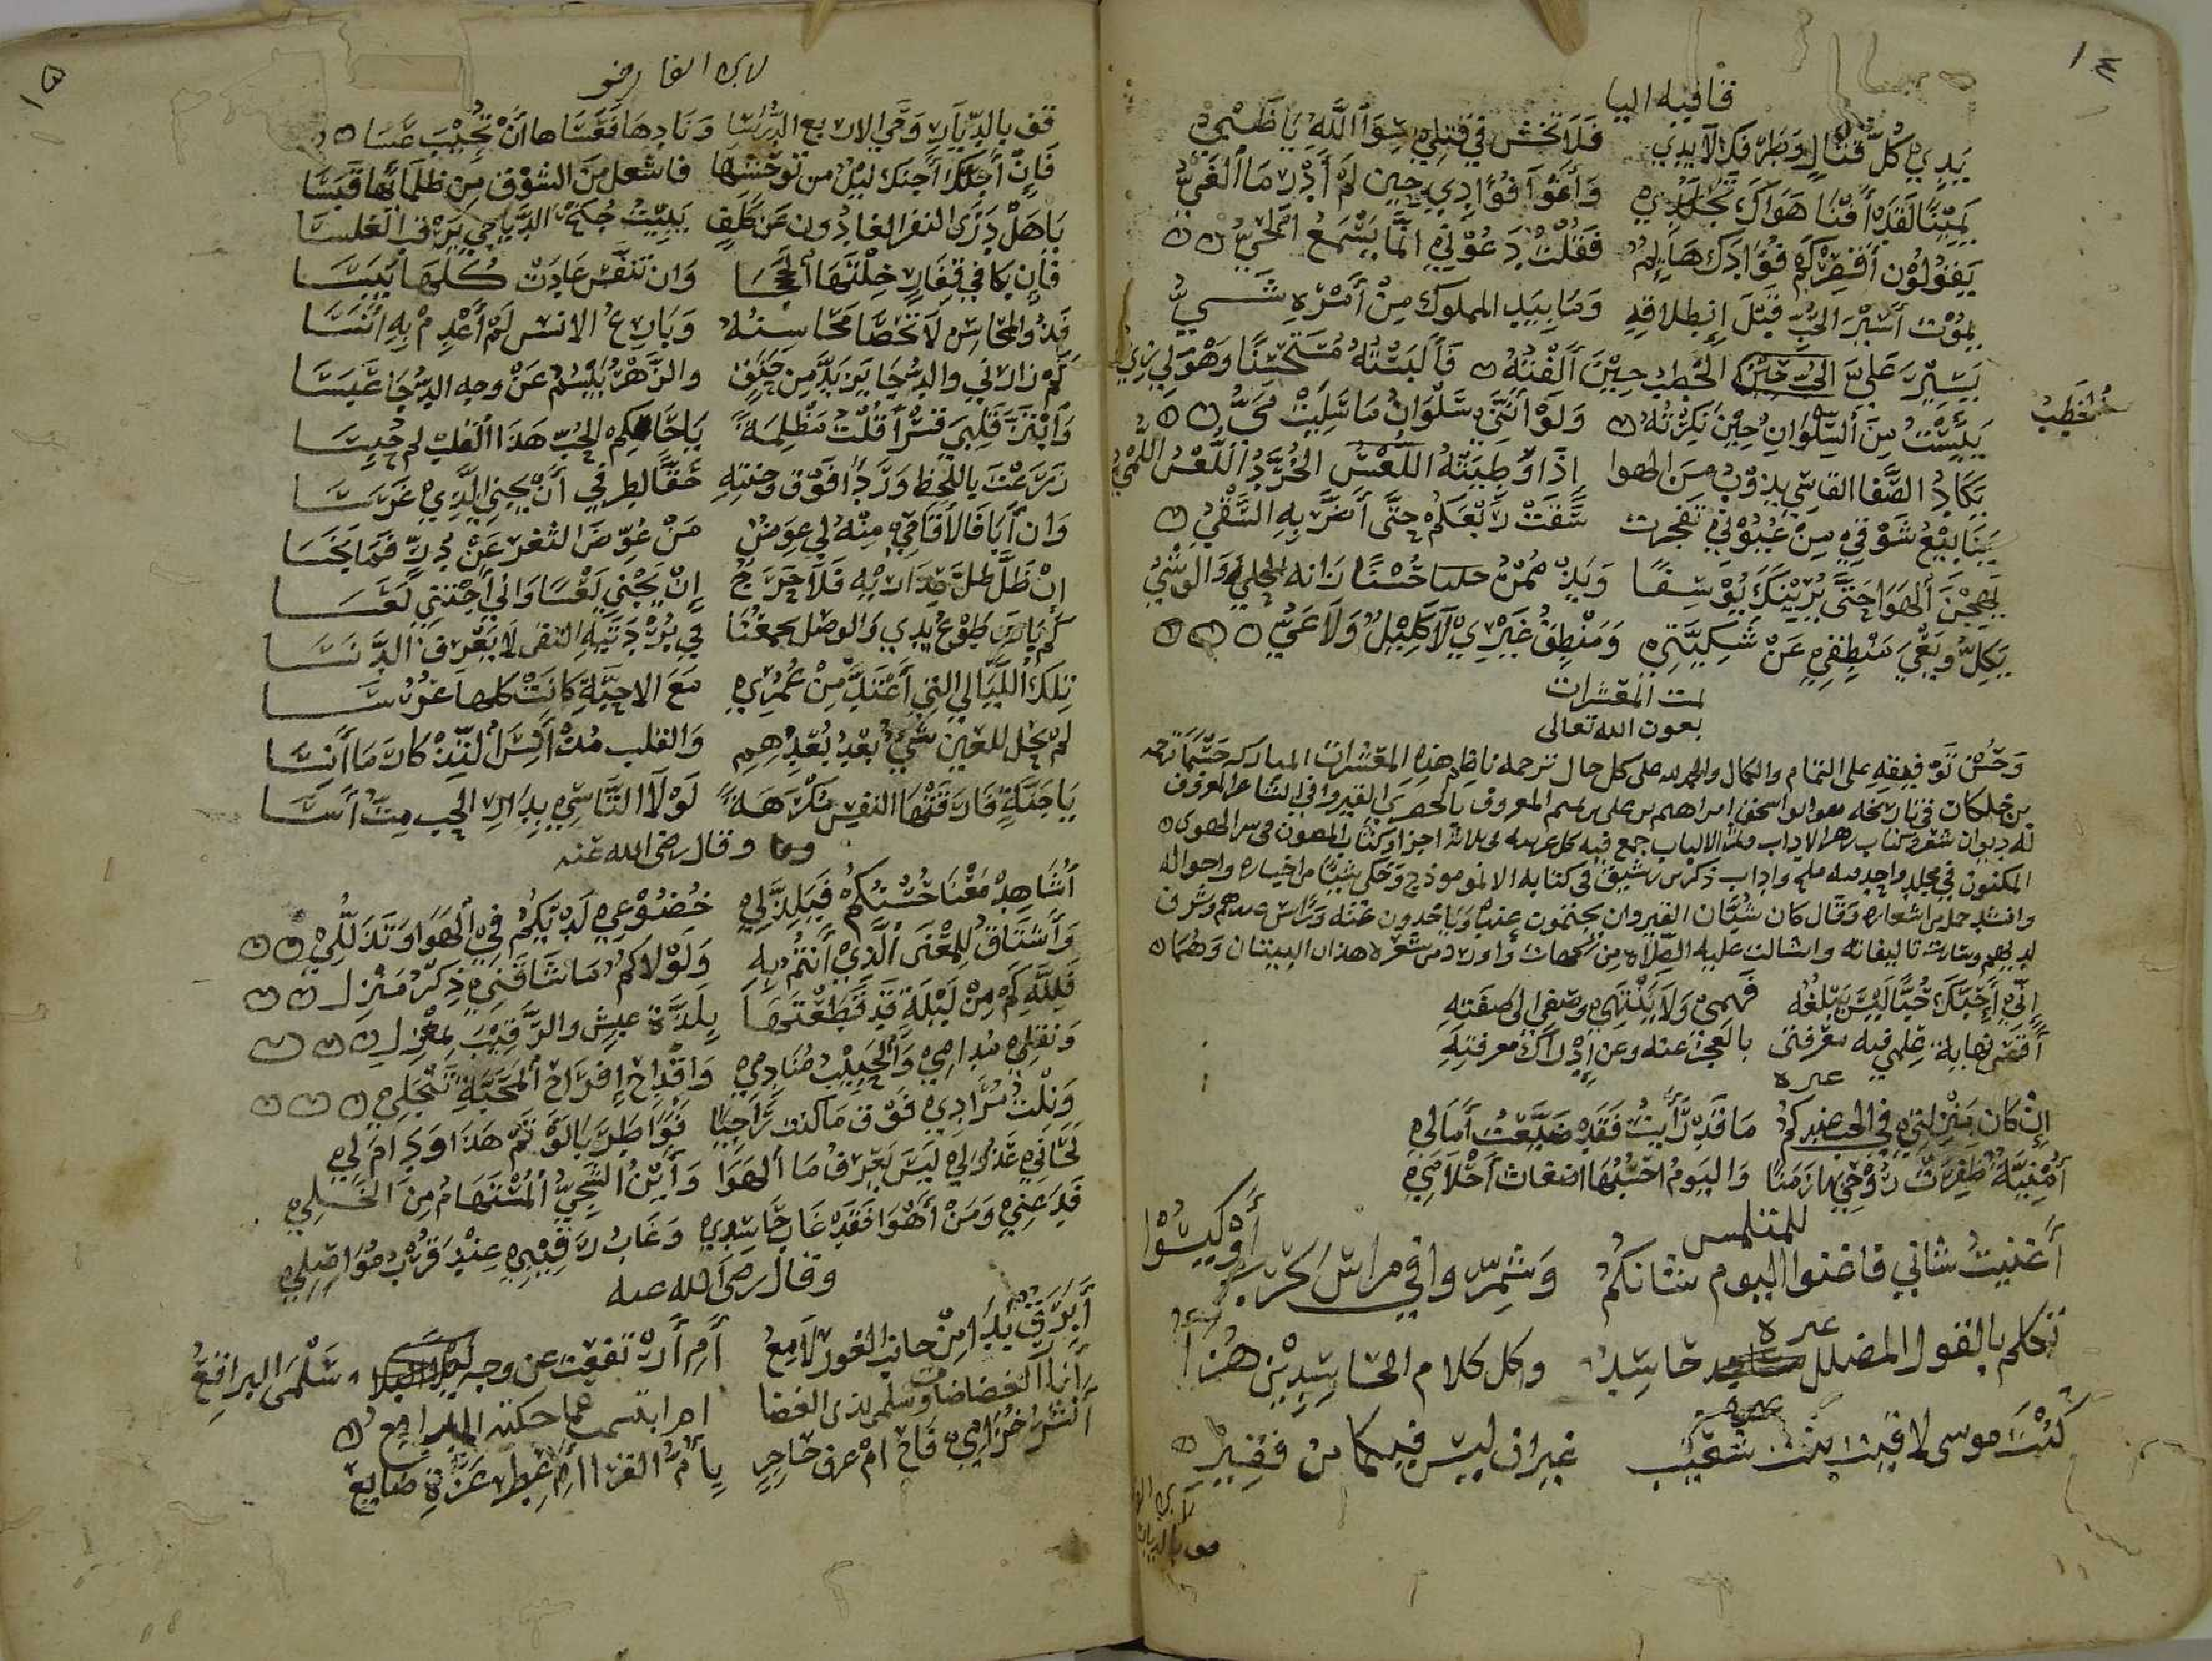 ١٤
قافيه اليا
يَدِي كُلَّ قتالٍ وَطَرْفَكَ لا يدي فَلَا تخش في قتلي سِوَا اللَّهِ يَا ظَبْيُ
يَمِيْنًا لَقَدْ أَفْنَا هَوَاكَ تَجَلُّدِي وَأَغْوَا فُؤَادِي حِين لَمْ أَدْرِ مَا الغَيُّ
يَقُولُوْن أَقْصِرْ كَمْ فُؤَادكَ هَائِمٌ فَقُلْتُ دَعُوْنِي انَّمَا يَسْمَعُ الحَيُّ
يموْت أَسَيْرَ الحُبِّ قَبْلَ إِنطِلَاقِهِ وَمَا بِيَدِ المملوك مِنْ أَسْرِهِ شَيُّ
يَسِيْرٌ عَلَيَّ الخَطْبُ حِيْنَ أَلِفْتُهُ فَأَلْبَسْتُهُ مُسْتَحْسَنًا وَهْوَ لِي زِيُّ
الخَطْبُ
يَئِسْتُ مِنَ السُّلْوَانِ حِيْنَ نَكِرْتُهُ وَلَوْ أَنَّنِي سَلْوَانُ مَا سَلِيَتْ مَيُّ
يَكَادُ الصَّفَا القاسِي يذوْبُ مِنَ الهوا إِذَا وُطِيَتْهُ اللُّعْسُ الخُرَّدُ اللُّعْسُ اللُّمْيُ
يَنَابِيْعُ شَوْقِي مِنْ عُيُوْنِي تفجرت سَقَتْ رَبْعَكُمْ حَتَّى أَضَرَّ بِهِ السَّقْيُ
يَهِيْجُنَ الهَوَا حَتَّى يُرِيْنَكَ يُوْسفًا حُسْنًا زَانه الحلي وَالوَشْيُ
يَكِلُّ وَيَعْيَ مَنْطِقِي عَنْ شَكِيَّتِي وَمَنْطِقُ غَيْرِي لَا كَلِيْلٌ وَلَا عَيُّ
تمت المعشرات
بعون الله تعالى
وَحُسْن تَوْفيقِهِ على التمام والكمال والحمد لله على كل حال ترجمه ناظم هذه المعشرات المباركه حَسْبَمَا ترجمه
بن خلكان في تاريخه هو ابو اسحق ابراهيم بن علي بن تميم المعروف بالحصري القيرواني الشاعر المعروف
له ديوان شعر وكتاب زهر الاداب وثمر الالباب جمع فيه كل غريبه في ثلاثة اجزا وكتاب المصون في سر الهوى
المكنون في مجلد واحد فيه ملح واداب ذكره بن رشيق في كتابه الانموذج وَحَكى شيئًا من اخباره واحواله
وانشد جمله من اشعاره وَقَال كان شُبَّان القيروان يجتمعون عنده وياخذون عنه وَرَاس عندهم وشرف
لديهم وسارت تاليفاته وانثالت عليه الصِّلاة من الجهات واورد من شعره هذان البيتان وَهُمَا
إِنِّي أُحِبُّكَ حُبًّا لَيْسَ يَبْلُغُه فَهْمِي وَلَا يَنْتَهِي وصفي الى صِفَتِهِ
أَقصَى نهاية عِلمي فيه معرفتي بالعجز عنه وعن إِدْرَاك معرفتِهِ
غيره
إِنْ كان مَنْزِلتي فِي الحب عندكمُ مَا قَدْ رَأَيْتُ فَقَدْ ضَيَّعْتُ أَيَّامِي
أُمْنِيَّةٌ ظفِرَتْ رُوْحِي بها زَمَنًا وَاليَوْمَ احْسَبُهَا اضغاث أَحْلَامِي
للمتلمس
أَغْنيتُ شاني فاغنوا اليوم شانكمُ وَشمِّروا في مراس الحَرْب أَوْ كيسُوا
غيره
تكلم بالقول المضلل حاسِدٌ وكل كلام الحاسِدِيْنَ هُرَا
غيره
كُنْتَ موسى لاقيت بنت شُعَيْب غير ان ليس فيكما من فقير
قف بالديار

١٥
لابن الفارض
قف بالدِّيَارِ وَحَيّ الاربع الدُّرُسَا وَنَادِهَا فَعَسَاها أَنْ تُجِيْبَ عَسَا
فَإِنْ أَجَنَّكَ ليلٌ من توحّشها فاشعل مِنَ الشوق مِن ظلمائها قَبَسَا
يَا هَلْ دَرَى النفر الغادُون عَن كَلِفٍ يَبِيْتُ جُنْحَ الدَّيَاجي يَرْقُبُ الغلسَا
فَإن بَكَا في قِفَارٍ خِلْتَهَا لُجَجَا وَان تنَفَّس عَادَتْ كُلّهَا يَبَسَا
فَذُو المحَاسِن لَا تُحْصَا مَحَاسِنُهُ وَبَارِعُ الانس لَمْ أَعْدِمْ بِهِ أُنُسَا
كَمْ زَارَني والدُّجَا يَرْبَدُّ مِنْ حَنَقٍ والزَّهْرُ يَبْسُمُ عَنْ وجه الدُّجَا عَبَسَا
وَابْتَزَّ قَلْبِيَ قَسْرًا قُلْتُ مَظْلِمَةً يَا حَاكِمَ الحُبِّ هَذَا القلبُ لم حُبِسَا
زَرَعْتُ باللَّحْظِ وَرْدًا فَوْق وَجْنتِهِ حَقًّا لِطرفي أَنْ يَجْنِي الَّذِي غَرَسَا
وَان أَبَا فَالأَقَاحِي مِنْهُ لِي عِوَضٌ مَنْ عُوِّضَ الثغر عَنْ دُرٍّ فَمَا بُخِسَا
إِنْ ظَلَّ ظِلُّ عِذَارَيْهِ فَلَا حَرَجٌ إِنْ يَجْنِ لَعْسًا وَانِي أَجْتَنِي لَعَسَا
كَمْ بَاتَ طَوْعَ يَدِي وَالوصْل يجمعُنَا فِي بُرْدَتَيْهِ التقى لَا يَعْرِفُ الدَّنَسَا
تِلكَ اللَّيَالِي التي أَعْتَدُّ مِنْ عُمُرِي مَعَ الاحِبَّةِ كَانَتْ كلها عُرُسَا
لمْ يَحْلُ للعَينِ شَيْءٌ بَعْدَ بُعْدِهِمِ وَالقلب مُذْ آنَسَ التَّذكَارَ مَا أَنِسَا
يَا جَنَّةً فَارَقَتْهَا النفس مُكْرَهَةً لَوْلَا التَّأَسِّي بِدَارِ الحب مِتُّ أَسَا
وقال رضي الله عنه
أُشَاهِدُ مَعْنَا حُسْنِكُمْ فَيَلِذُّ لِي خُضُوْعِي لَدَيْكُمْ فِي الْهَوَا وَتَذَلُّلِي
وَأَشتَاقُ لِلمَغْنَى الَّذِي أَنْتُمُ بِهِ وَلَوْلَاكُمُ مَا شَاقَنِي ذِكْرُ مَنْزِلِ
فَلِلَّهِ كَمْ مِنْ لَيْلَةٍ قَدْ قَطَعْتُهَا بِلَذَّة عيش والرَّقِيْبُ بمعْزلِ
وَنقلي مُدَامِي وَالحَبِيْبُ مُنَادِمِي وَاقْدَاح افْرَاح المَحَبَّةِ تنْجَلِي
وَنِلْتُ مُرَادِي فَوْق مَا كنت رَاجِيًا فَوَا طَرَبَا لَوْ تمَّ هَذَا وَدَامَ لِي
لَحَانِي عَذُوْلِي لَيْسَ يَعْرِفُ مَا الهَوَا وَأَيْنَ الشَّجِيُّ المُسْتَهَامُ مِنَ الخَلِي
فَدَعْنِي وَمَنْ أَهْوَا فَقَدْ غَابَ حَاسِدِي وَغَابَ رَقِيْبِي عِنْدَ قُرْبِ مُوَاصِلِي
وقال رضي الله عنه
أَبَرْقٌ بَدَا مِنْ جانب الغور لَامِعُ أَمِ أرْتفعت عن وجه لَيْلَى البراقعُ
أَنَارُ الغضا ضاءت وسلمى بذي الغضا ام ابتسمت عما حكته المدامع
أَنشرُ خُزَامِيٍّ فَاحَ امْ عرف حَاجِرٍ بِأُمِّ القرا أَمْ عِطْرُ عَزَّةَ ضايعُ